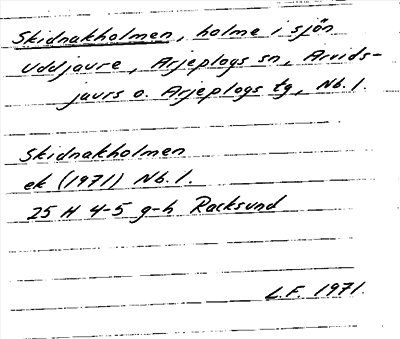 Skidnakholmen, holme i sjön
Uddjaure, Arjeplogs sn, Arvids-
jaurs o. Arjeplogs tg, Nb. l.
Skidnakholmen
ek (1971) Nb. l.
25 H 4-5 g-h Racksund
L.F. 1971.